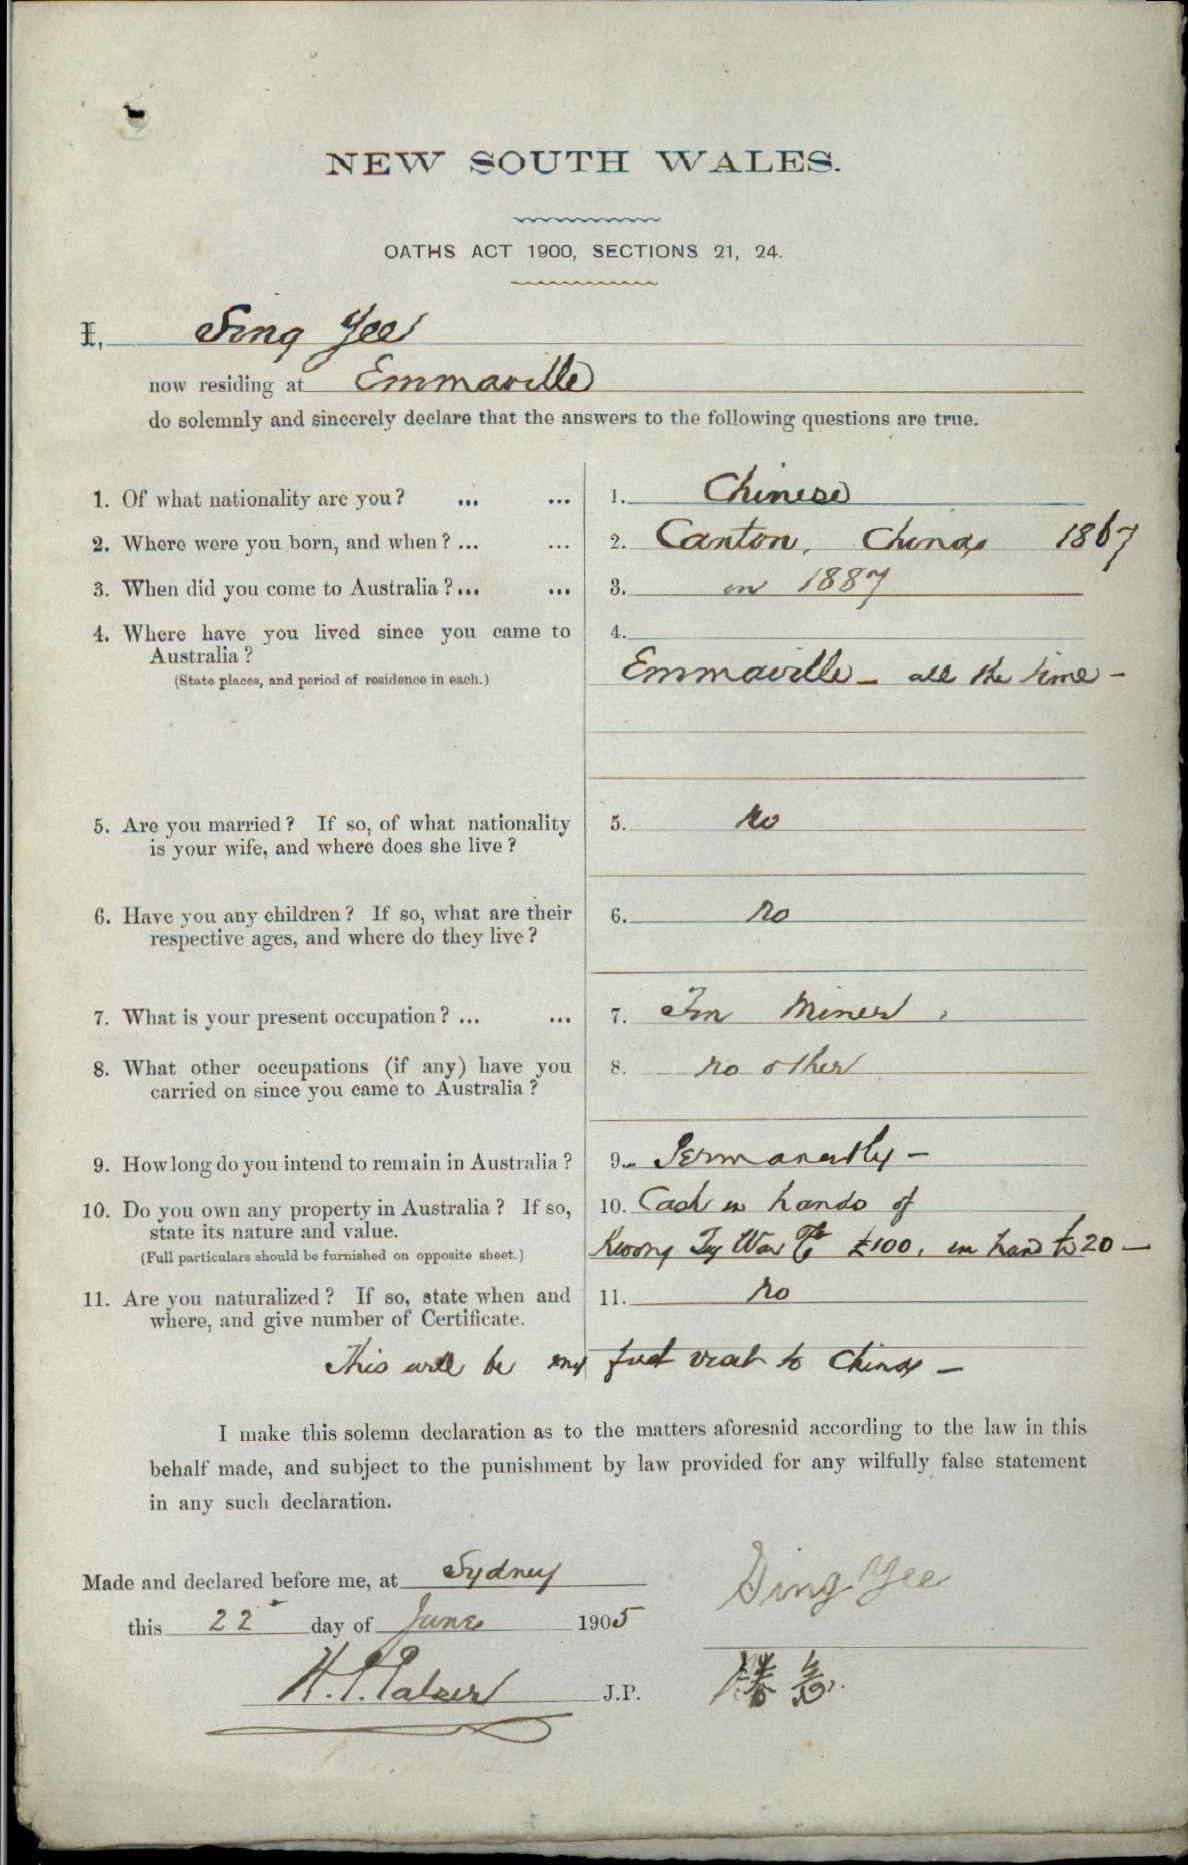 NEW SOUTH WALES.
OATHS ACT 1900, SECTIONS 21, 24.
I, Sing Yee
now residing at Emmaville
do solemnly and sincerely declare that the answers to the following questions are true.
1. Of what nationality are you? ... ... 1. Chinese
2. Where were you born, and when? ... ... 2. Canton, China 1867
3. When did you come to Australia? ... ... 3. in 1887
4. Where have you lived since you came to 4.
Australia?
(State places, and period of residence in each.) Emmaville – all the time –
5. Are you married? If so, of what nationality 5. no
is your wife, and where does she live?
6. Have you any children? If so, what are their 6. no
respective ages, and where do they live?
7. What is your present occupation? ... ... 7. Tin Miner.
8. What other occupations (if any) have you 8. no other
carried on since you came to Australia?
9. How long do you intend to remain in Australia? 9. Permanently –
10. Do you own any property in Australia? If so, 10. Cash in hands of
state its nature and value.
(Full particulars should be furnished on opposite sheet.) Kwong War £100, in hand £20 –
11. Are you naturalized? If so, state when and 11. no
where, and give number of Certificate.
This will be my first visit to China –
I make this solemn declaration as to the matters aforesaid according to the law in this
behalf made, and subject to the punishment by law provided for any wilfully false statement
in any such declaration.
Made and declared before me, at Sydney
Sing Yee
this 22 day of June 1905
H. P. Palser J.P.
勝